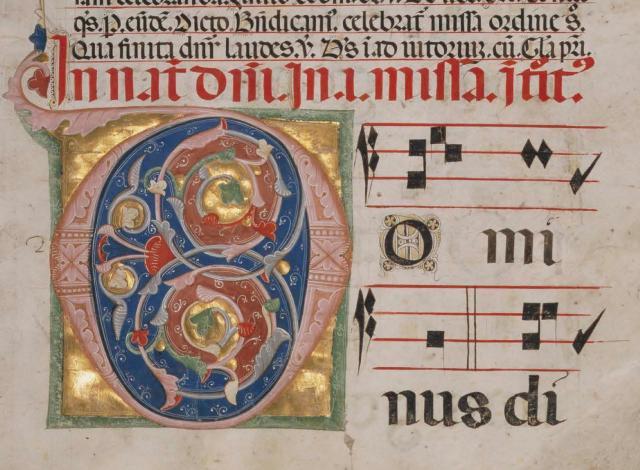 qs. P. eūdē. Dicto Bn̄dicamꝰ, celebrat̄ missa ordine s̄.
Qua finita dn̄r laudes ẏ. Ds̄ ī ad iutoriuꝫ. cū. Cla pri.
In nat̄ dn̄i. In .i. missa. Itit̄ꝰ.
D O mi
nus di